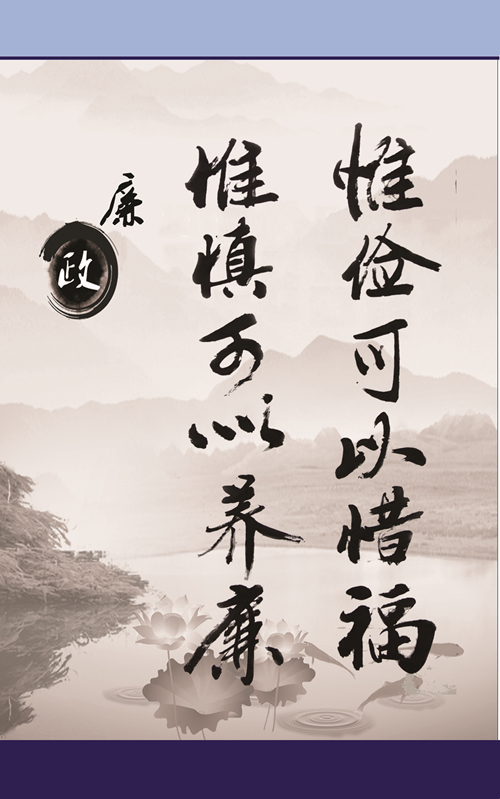 惟俭可以惜福
惟慎可以养廉
廉
政